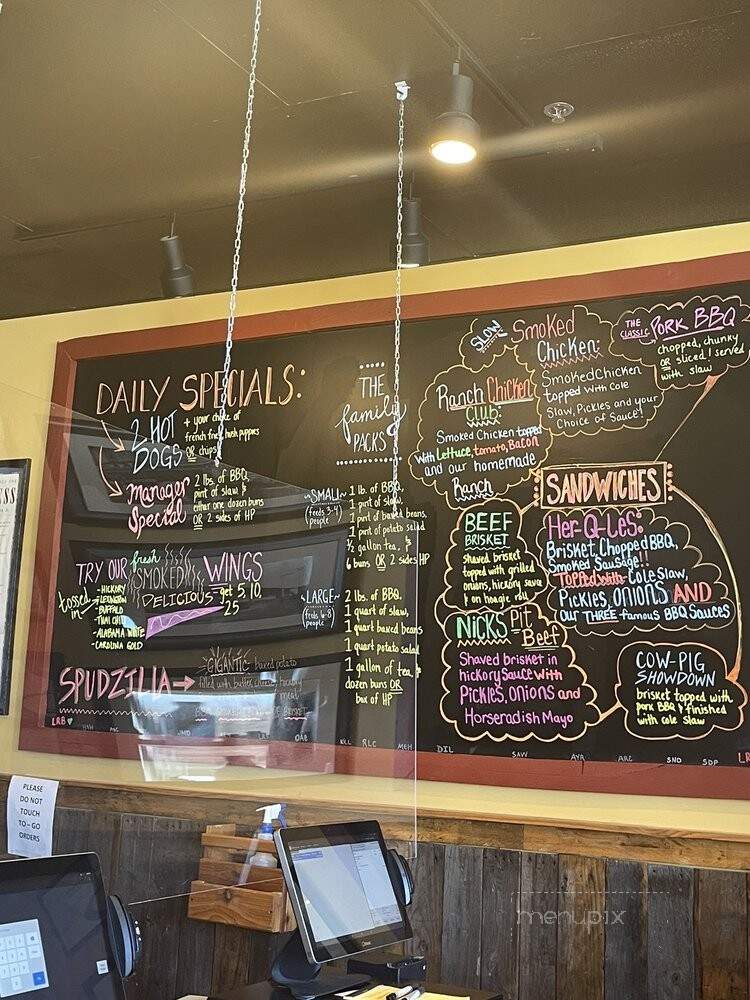 DAILY SPECIALS:
2 HOT DOGS
+ your choice of
french fries, hush puppies
OR chips
Manager Special
2 lbs. of BBQ,
pint of slaw, &
either one dozen buns
OR 2 sides of HP
TRY OUR fresh SMOKED WINGS
DELICIOUS - get 5, 10,
25
tossed in
- HICKORY
- LEXINGTON
- BUFFALO
- THAI CHILI
- ALABAMA WHITE
- CAROLINA GOLD
SPUDZILLA
GIGANTIC baked potato
filled with butter, cheese,
meat
LRB
THE
family
PACKS
~SMALL~
(feeds 3-4
people)
1 lb. of BBQ,
1 pint of slaw,
1 pint of baked beans,
1 pint of potato salad
1/2 gallon tea, &
6 buns OR 2 sides HP
~LARGE~
(feeds 6-8
people)
2 lbs. of BBQ,
1 quart of slaw,
1 quart baked beans
1 quart potato salad
1 gallon of tea, &
dozen buns OR
box of HP
SLOW SMOKED
Chicken:
Smoked Chicken
topped with Cole
Slaw, Pickles and your
Choice of Sauce!
THE CLASSIC PORK BBQ
chopped, chunky
OR sliced! served
with slaw
Ranch Chicken
CLUB:
Smoked Chicken topped
with Lettuce, tomato, Bacon
and our homemade
Ranch
SANDWICHES
BEEF
BRISKET
shaved brisket
topped with grilled
onions, hickory sauce
on hoagie roll
Her-Q-Les:
Brisket, Chopped BBQ,
Smoked Sausage!!
Topped with Cole Slaw,
Pickles, onions AND
our THREE famous BBQ Sauces
NICK'S Pit
Beef
Shaved brisket in
hickory Sauce with
Pickles, Onions and
Horseradish Mayo
COW-PIG
SHOWDOWN
brisket topped with
pork BBQ & finished
with cole slaw
RLC MEH DIL SAVV AYA ARC SND SDP
PLEASE
DO NOT
TOUCH
TO-GO
ORDERS
menupix